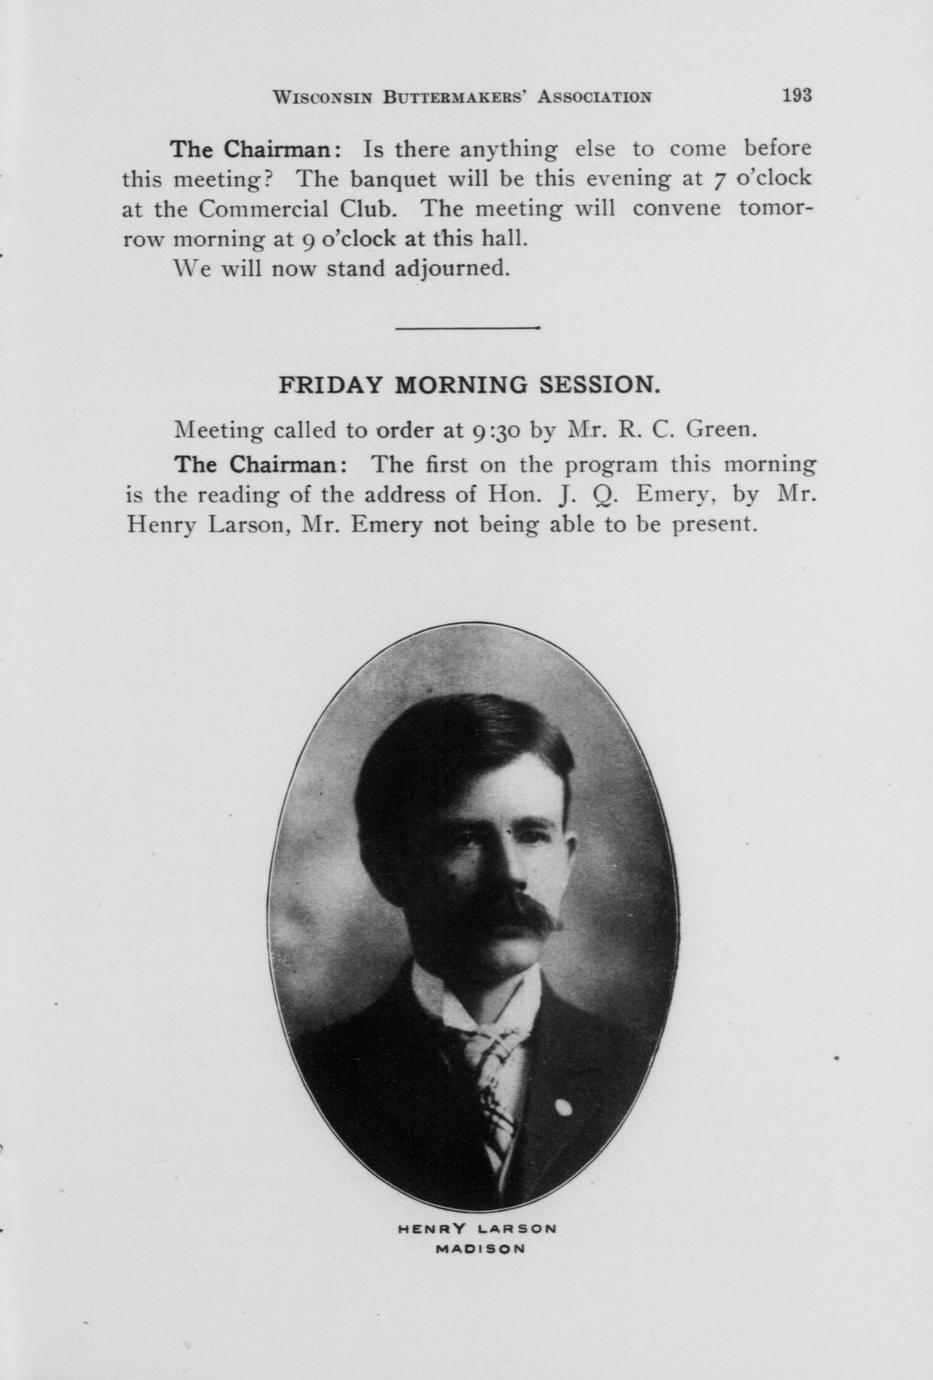 Wisconsin Buttermakers' Association 193
The Chairman: Is there anything else to come before
this meeting? The banquet will be this evening at 7 o'clock
at the Commercial Club. The meeting will convene tomor-
row morning at 9 o'clock at this hall.
We will now stand adjourned.
FRIDAY MORNING SESSION.
Meeting called to order at 9:30 by Mr. R. C. Green.
The Chairman: The first on the program this morning
is the reading of the address of Hon. J. Q. Emery, by Mr.
Henry Larson, Mr. Emery not being able to be present.
HENRY LARSON
MADISON